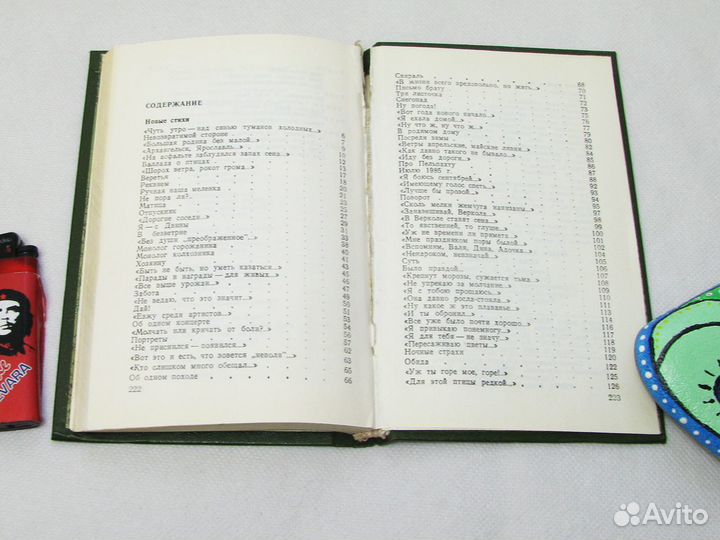 СОДЕРЖАНИЕ
Новые стихи
«Чуть утро — над синью туманов холодных...»
Невозвратимой стороне 6
«Большая родина без малой...» 7
«Архангельск, Ярославль, 9
«На асфальте заблудился запах сена...» 10
Баллада о птицах 12
«Шорох ветра, рокот грома...» 13
Веретья 17
Реквием 18
Ручная наша меленка 20
Не пора ли?.. 21
Матица 22
Отпускник 24
«Дорогие соседи...» 27
Я — с Двины 29
В безветрие 31
«Без души „преображенное"...» 33
Монолог горожанина 38
Монолог колхозника 40
Хозяину 43
«Быть не быть, но уметь казаться...» 45
«Парады и награды — для живых...» 46
«Все выше урожаи...» 47
Забота 48
«Не ведаю, что это значит... 49
Дай! 50
«Езжу среди артистов... 51
Об одном концерте 53
«Молчать или кричать от боли?..» 54
Портреты 56
«Не приснился — появился...» 57
«Вот это и есть, что зовется „неволя"...» 62
«Кто слишком много обещал...» 63
Об одном походе 65
66
222
Спираль 68
«В жизни всего предовольно, но жить...» 70
Письмо брату 71
Три листочка 72
Снегопад 74
Ну погода! 75
«Вот года нового начало... 76
«Я ехала домой...» 77
«Ну что ж, ну что ж...» 79
В родимом дому 80
Посреди зимы 82
«Ветры апрельские, майские ливни... 83
«Как давно такого не бывало... 85
«Иду без дороги... 86
Про Пелькахту 87
Июлю 1985 г. 88
«Я боюсь сентябрей... 91
«Имеющему голос спеть... 92
«Лучше бы прозой...» 93
Поворот 94
«Сколь мелки жемчуга нанизаны... 95
«Занавешивай, Веркола... 97
«В Верколе ставят сена...» 98
«То явственней, то глуше... 99
«Уж не времени ли примета... 100
«Мне праздником поры былой... 101
«Вспомнили, Валя, Дина, Адочка... 102
«Ненароком, невзначай... 103
Суть 105
Было правдой 106
«Крепнут морозы, сужается тьма... 107
«Не упрекаю за молчание... 108
«Я с тобою прощаюсь... 109
«Она давно росла-стояла... 110
«Ну какая ж это плаванье... 111
«И ты обронил... 112
«Все уже было почти хорошо... 113
«Я привыкаю понемногу... 114
«Я для тебя — не значу... 115
«Пересаживаю цветы... 116
Ночные страхи 118
Обида 120
«Уж ты горе мое, горе!..» 122
«Для этой птицы редкой... 125
126
223
VARA
Avito